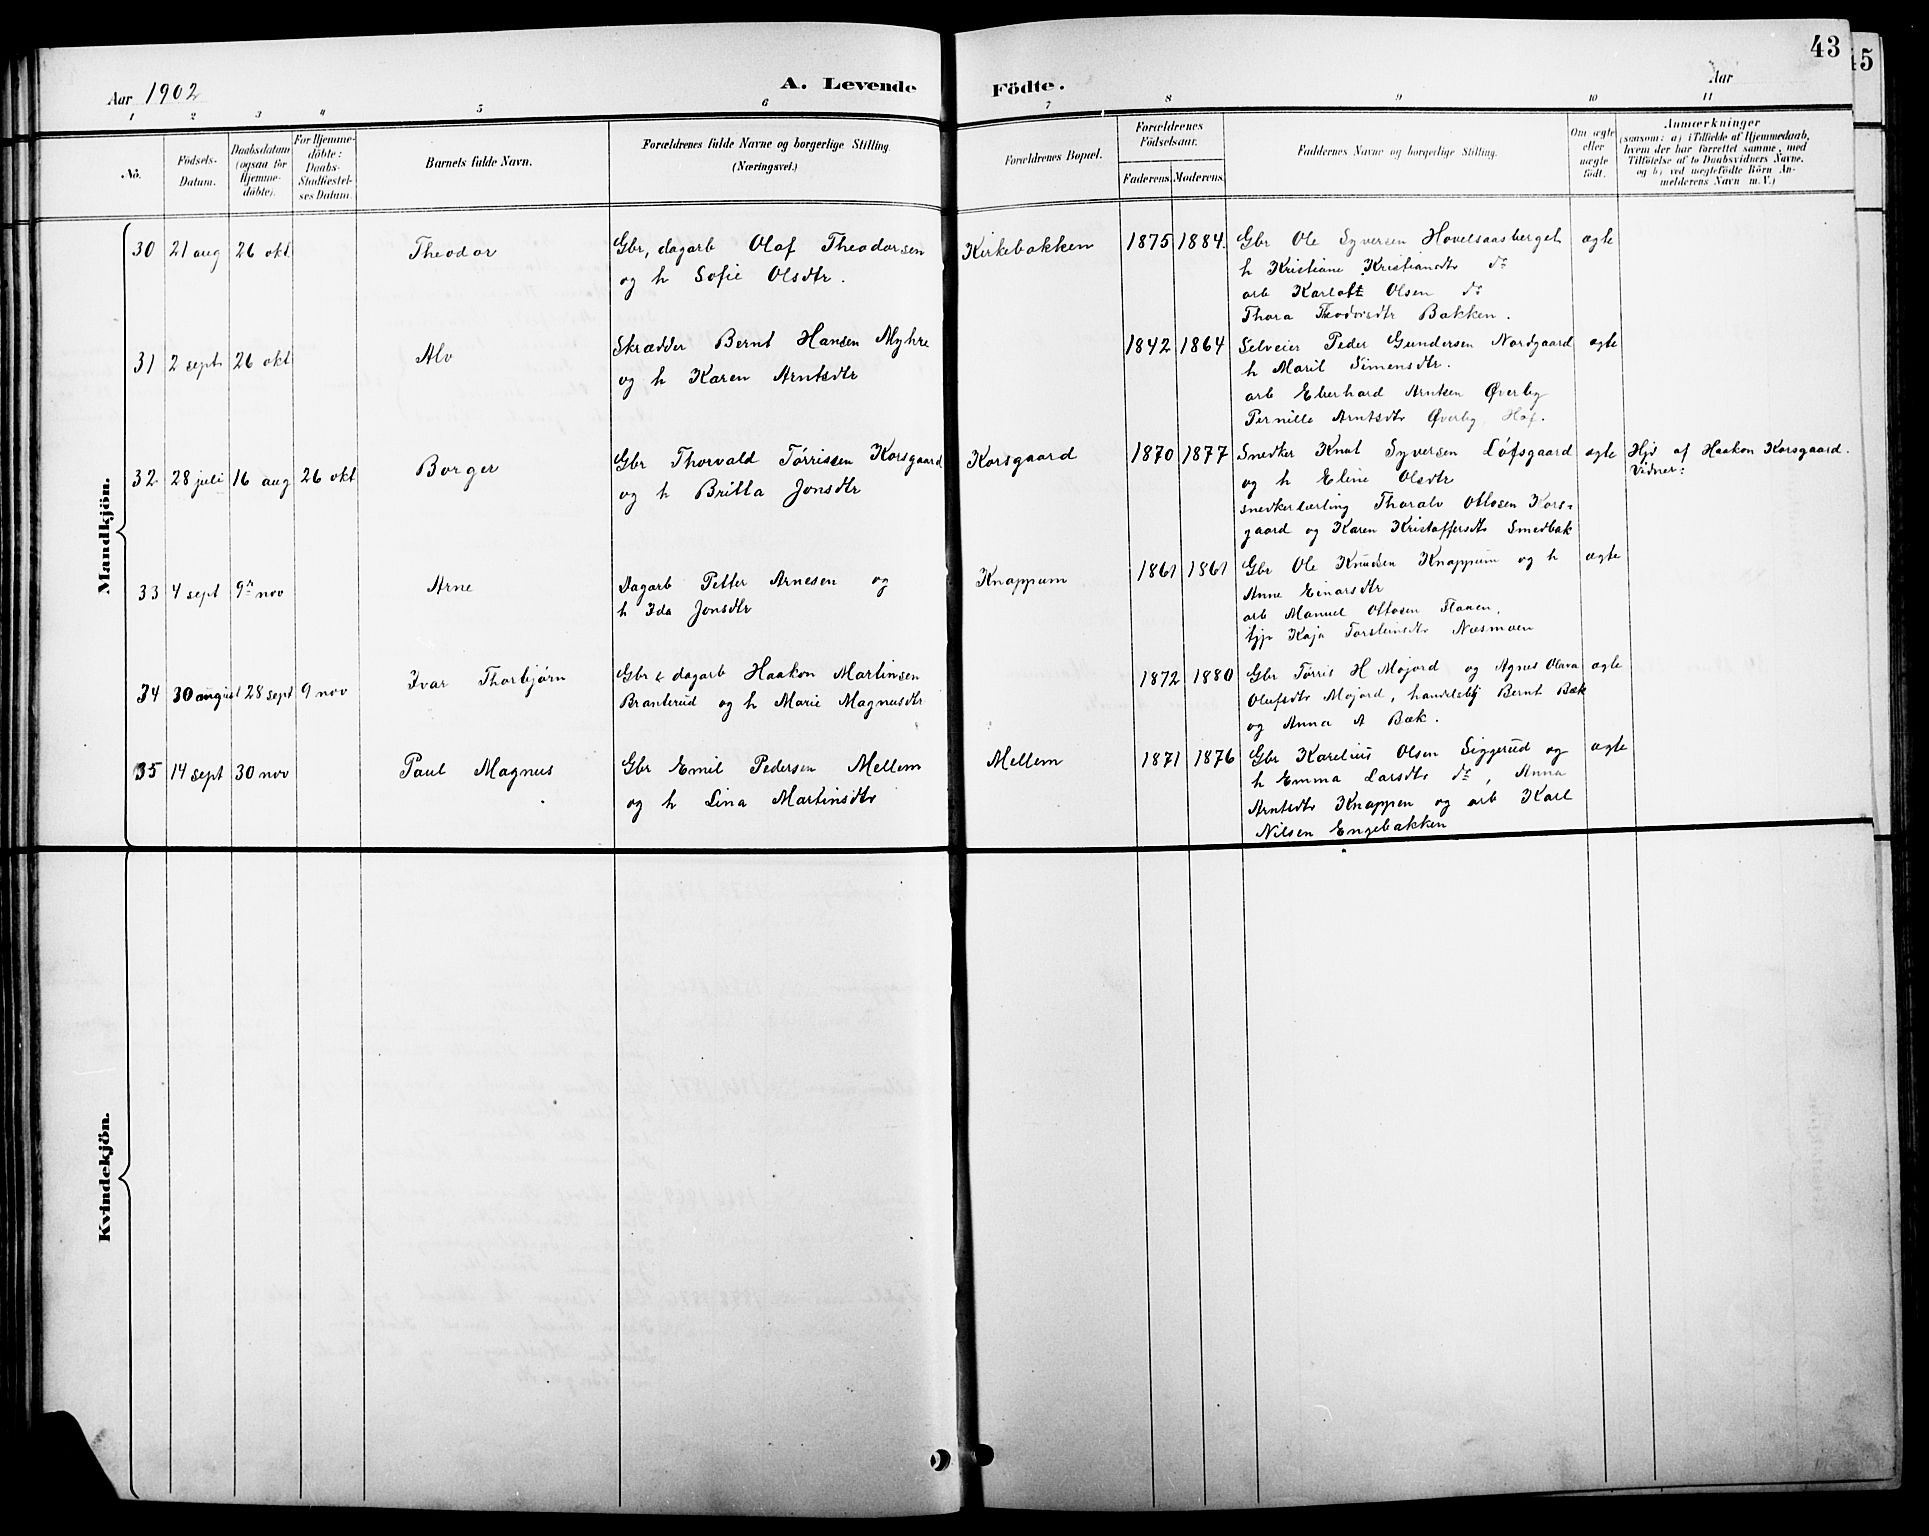 43
45
Aar 1902
A. Levende Födte.
Aar
1 2 3 4 5 6 7 8 9 10 11
No.
Födsels-Datum.
Daabsdatum (ogsaa for Hjemme-döbte).
For Hjemme-döbte: Daabs-Stadfæstel-ses Datum.
Barnets fulde Navn.
Forældrenes fulde Navne og borgerlige Stilling.
(Næringsvei.)
Forældrenes Bopæl.
Forældrenes Födselsaar.
Faderens. Moderens.
Faddernes Navne og borgerlige Stilling.
Om ægte eller uægte födt.
Anmærkninger
(saasom: a) i Tilfælde af Hjemmedaab,
hvem der har forrettet samme, med
Tilföielse af to Daabsvidners Navne.
og b) ved uægtefödte Börn An-
melderens Navn m. V.)
Mandkjön.
30 21 aug 26 okt Theodor Gbr, dagarb Olaf Theodorsen Kirkebakken 1875 1884. Gbr Ole Syversen Hovelsaasberget ægte
og h Sofie Olsdtr. h Kristiane Kristiansdtr do
arb Karloft Olsen do
Thora Theodorsdtr Bakken.
31 2 sept 26 okt Alv Skrædder Bernt Hansen Myhre 1842 1864 Selveier Peder Gundersen Nordgaard ægte
og h Karen Arntsdtr h Marit Simensdtr.
arb Eberhard Arntsen Øverby
Pernille Arntsdtr Øverby, Hof.
32 28 juli 16 aug 26 okt Borger Gbr Thorvald Tørrissen Korsgaard Korsgaard 1870 1877 Snedker Knut Syversen Løfsgaard ægte Hjd af Haakon Korsgaard.
og h Britta Jonsdtr og h Eline Olsdtr Vidner:
snedkerlærling Thoralv Ottosen Kors-
gaard og Karen Kristoffersdtr Smedbak
33 4 sept 9de nov Arne Dagarb Petter Arnesen og Knappum 1861 1861 Gbr Ole Knudsen Knappum og h ægte
h Ida Jonsdtr Anne Einarsdtr
arb Manuel Ottosen Flanen,
tjp Kaja Torsteinsdtr Næsmoen
34 30 august 28 sept 9 nov Ivar Thorbjørn Gbr & dagarb Haakon Martinsen 1872 1880 Gbr Tørris H Mojord og Agnes Olava ægte
Branterud og h Marie Magnusdtr Olufsdtr Mojord, handelsbtj Bernt Bæk
og Anna A Bæk.
35 14 sept 30 nov Paul Magnus Gbr Emil Pedersen Mellem Mellem 1871 1876 Gbr Karelius Olsen Siggerud og ægte
og h Lina Martinsdtr h Emma Larsdtr do, Anna
Arntsdtr Knappen og arb Karl
Nilsen Engebakken
Kvindekjön.